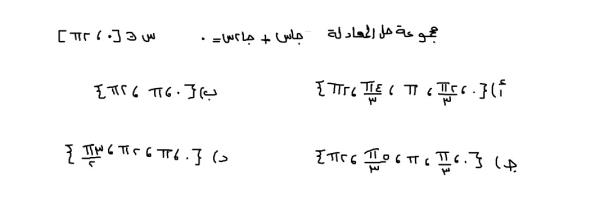 مجموعة حل المعادلة جاس + جا٢س = ٠ س ∈ [٠ ، ٢π]
أ) {٠ ، ٢π/٣ ، π ، ٤π/٣ ، ٢π} ب) {٠ ، π ، ٢π}
ج) {٠ ، π/٣ ، π ، ٥π/٣ ، ٢π} د) {٠ ، π ، ٢π ، ٣π/٢}